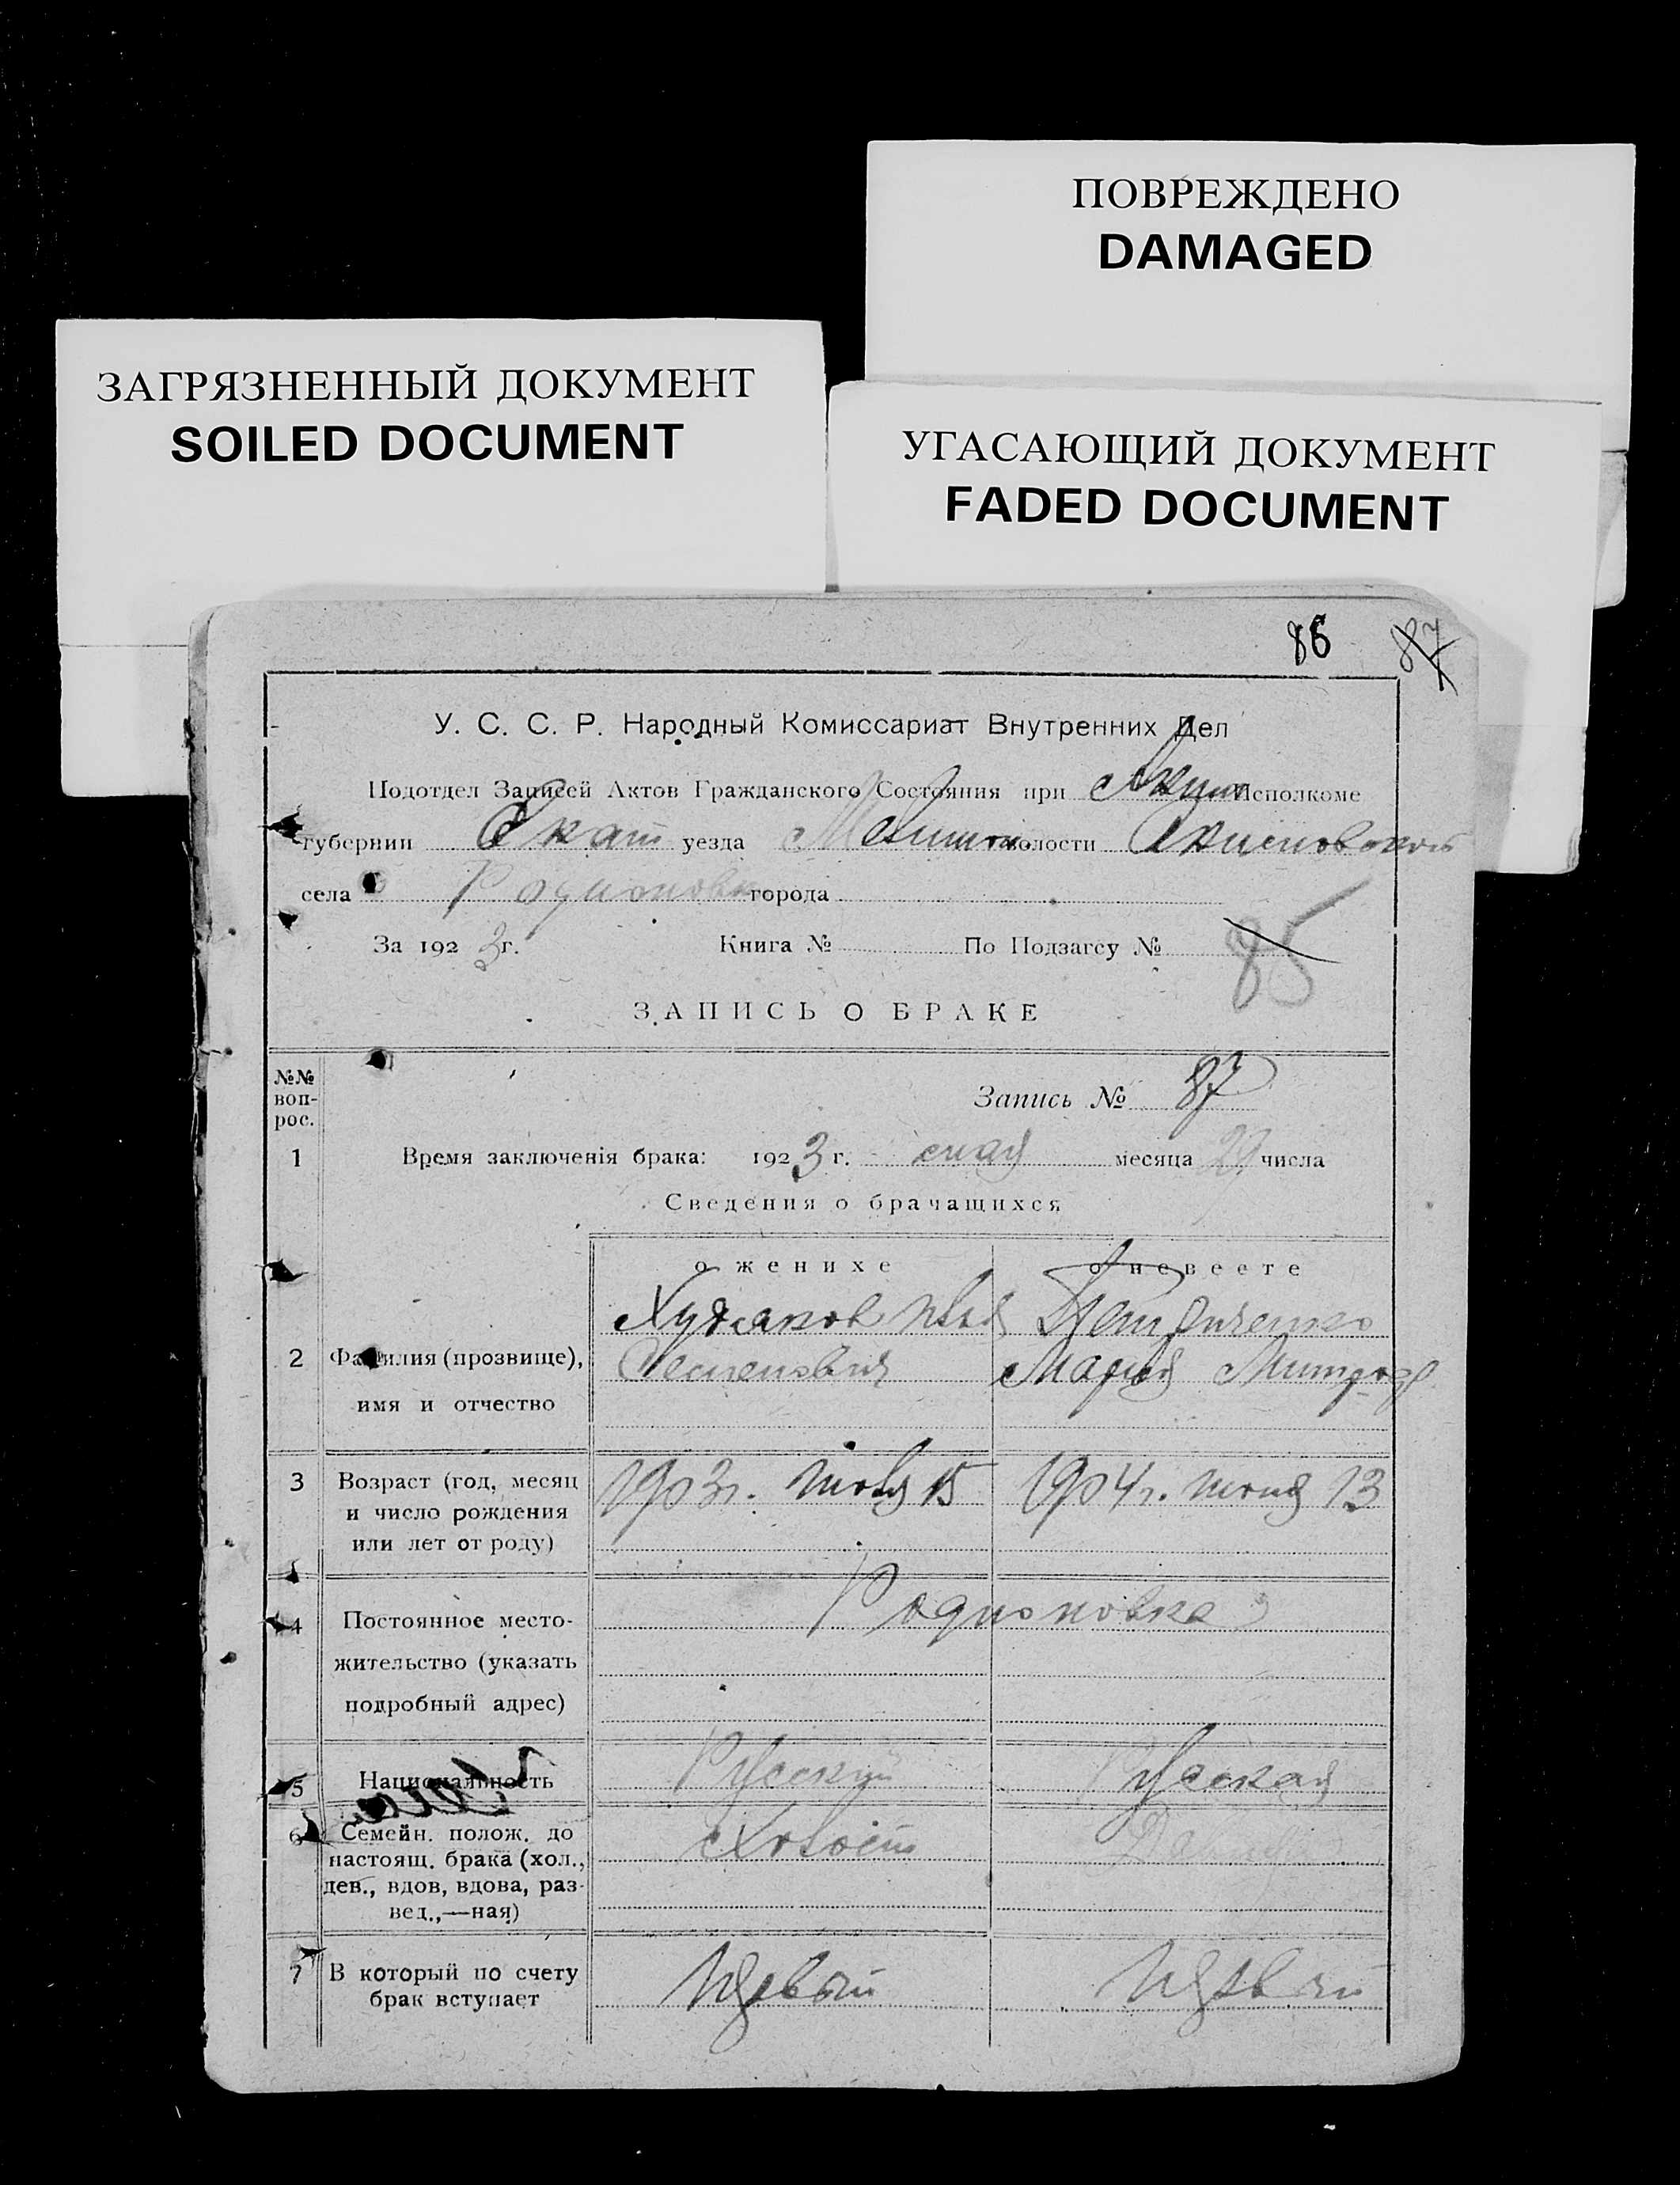 ПОВРЕЖДЕНО
DAMAGED
ЗАГРЯЗНЕННЫЙ ДОКУМЕНТ
SOILED DOCUMENT
УГАСАЮЩИЙ ДОКУМЕНТ
FADED DOCUMENT
86 87
У. С. С. Р. Народный Комиссариат Внутренних Дел
Подотдел Записей Актов Гражданского Состояния при Исполкоме
губернии Екат уезда волости
села Родионовка города
За 1923г. Книга № По Подзагсу № 85
ЗАПИСЬ О БРАКЕ
№№ воп-рос.
Запись № 87
1 Время заключенія брака: 1923 г. мая месяца 29 числа
Сведения о брачащихся
о женихе о невесте
Худяков Илья
2 Фамилия (прозвище), Мария
имя и отчество
3 Возраст (год, месяц 1903г. июля 15 1904г. июня 13
и число рождения
или лет от роду)
4 Постоянное место- Родионовка
жительство (указать
подробный адрес)
5 Национальность Русский Русская
6 Семейн. полож. до Холост
настоящ. брака (хол.,
дев., вдов, вдова, раз-
вед.,—ная)
7 В который по счету Первый Первый
брак вступает